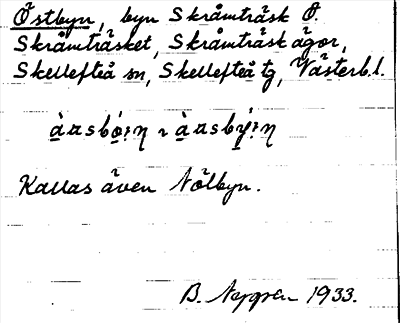 Östbyn, byn Skråmträsk Ö.
Skråmträsket, Skråmträsk ägor,
Skellefteå sn, Skellefteå tg, Västerb.l.
Kallas även Nölbyn.
B. Nygren 1933.